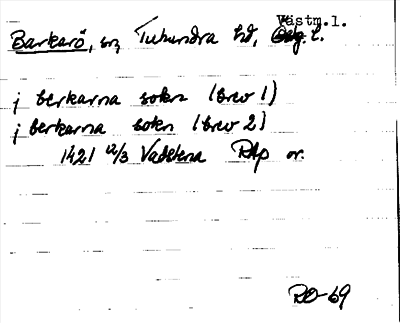 Västm.l.
Barkarö, sn, Tuhundra hd, Ög. l.
j berkarna sokn (brev 1)
j berkarna sokn (brev 2)
1421 12/3 Vadstena RAp or.
RO-69